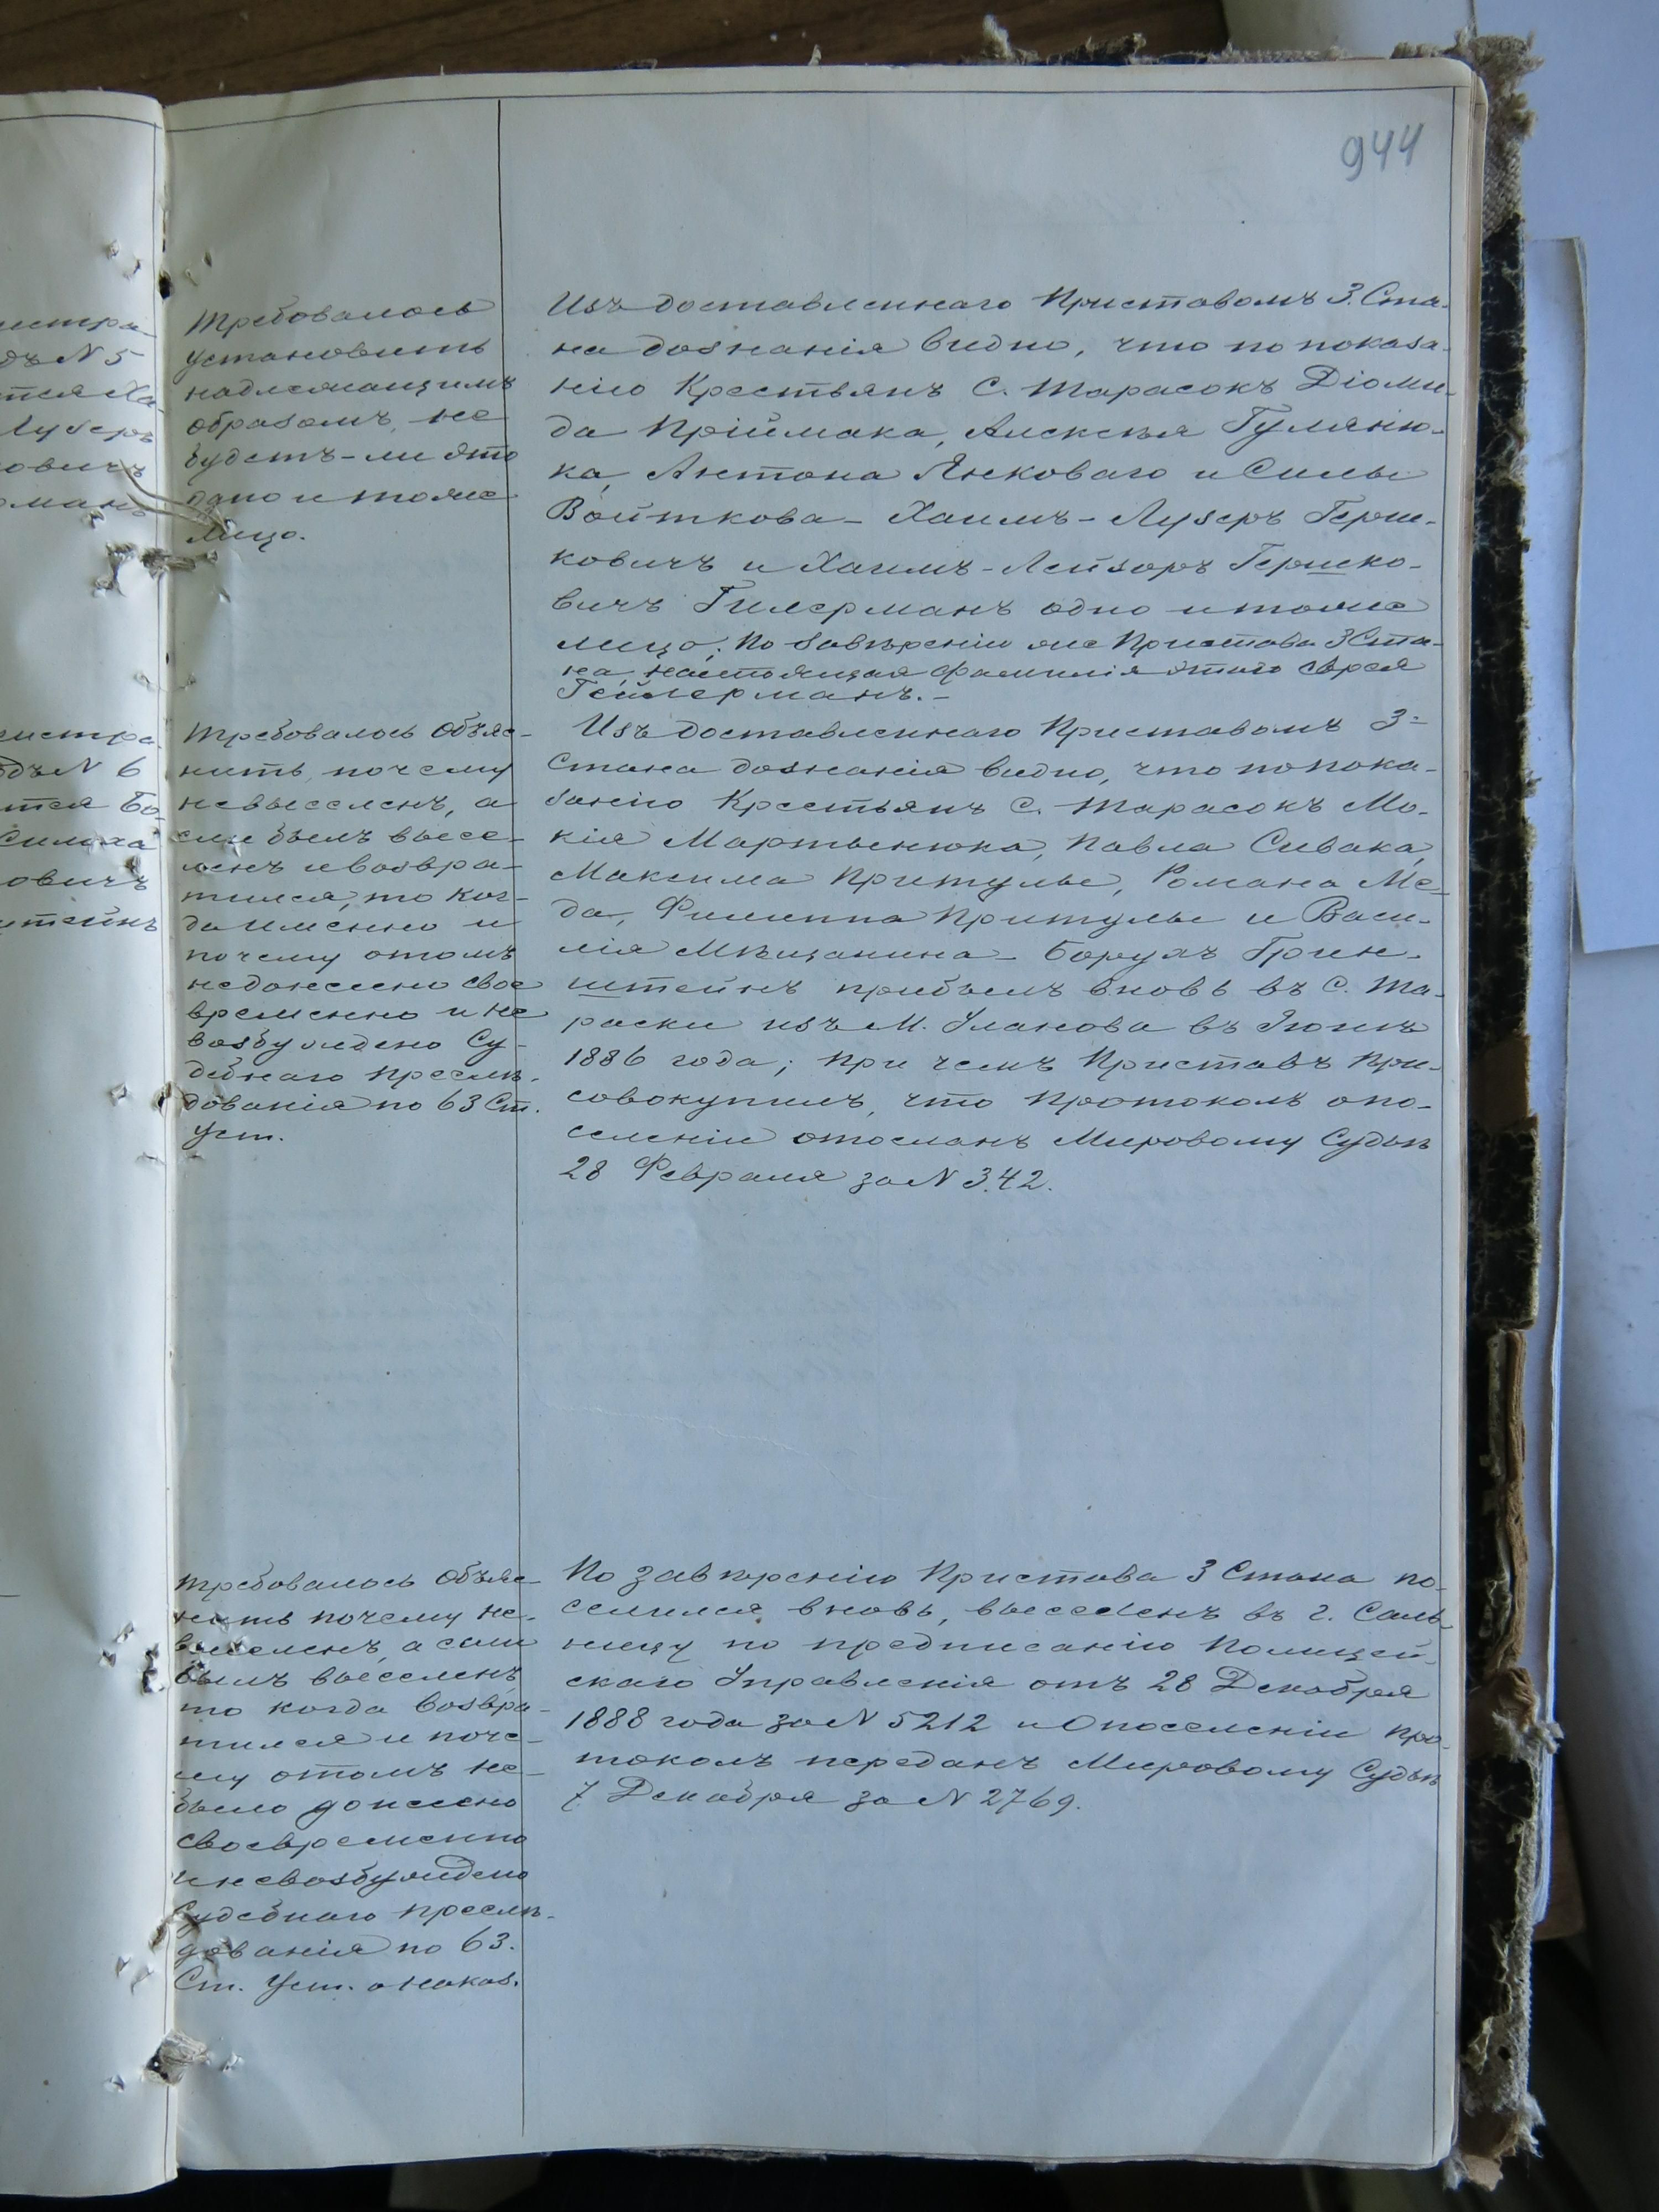 944
истра
дъ N 5
тся Ха
Лузеръ
овичъ
манъ
Требовалось
установить
надлежащимъ
образомъ, не
будетъ-ли это
одно и тоже
лицо.
Изъ доставленнаго Приставомъ 3. Ста-
на дознанія видно, что по показа-
нію Крестьянъ С. Тарасокъ Діоми-
да Пріймака, Алексѣя Гуляню-
ка, Антона Янковаго и Силы
Войткова - Хаимъ-Лузеръ Герш-
ковичъ и Хаимъ-Лейзоръ Гершко-
вичъ Гилерманъ одно и тоже
лицо; По завѣренію же Пристава 3 Ста-
на, настоящая фамилія этаго еврея
Гейлерманъ.-
истра
дъ N 6
тся Бо
Симха
овичъ
штейнъ
Требовалось Объяс-
нить, почему
невыселенъ, а
если былъ высе-
ленъ и возвра-
тился, то ког-
да именно и
почему отомъ
недонесено свое
временно и не
возбуждено Су-
дебнаго преслѣ-
дованія по 63 Ст.
Уст.
Изъ доставленнаго Приставомъ 3-
Стана дознанія видно, что по пока-
занію Крестьянъ С. Тарасокъ Мо-
кія Мартынюка, Павла Сивака,
Максима Притулы, Романа Ме-
да, Филиппа Притулы и Васи-
лія Мѣщанина - Борухъ Грин-
штейнъ прибылъ вновь въ С. Та-
раски изъ М. Уланова въ Іюнѣ
1886 года; при чемъ Приставъ при-
совокупилъ, что протоколъ опо-
селеніи отосланъ Мировому Судьѣ
28 Февраля за N 342.
Требовалось Объяс-
нить почему не-
выселенъ, а если
былъ выселенъ
то когда возвра-
тился и поче-
му отомъ не-
было донесено
своевременно
и невозбуждено
Судебнаго преслѣ-
дованія по 63.
Ст. Уст. о наказ.
По завѣренію Пристава 3 Стана по-
селился вновь, выселенъ въ г. Саль-
ницу по предписанію Полицей-
скаго Управленія отъ 28 Декабря
1888 года за N 5212 и Опоселеніи про-
токолъ переданъ Мировому Судьѣ
7 Декабря за N 2769.